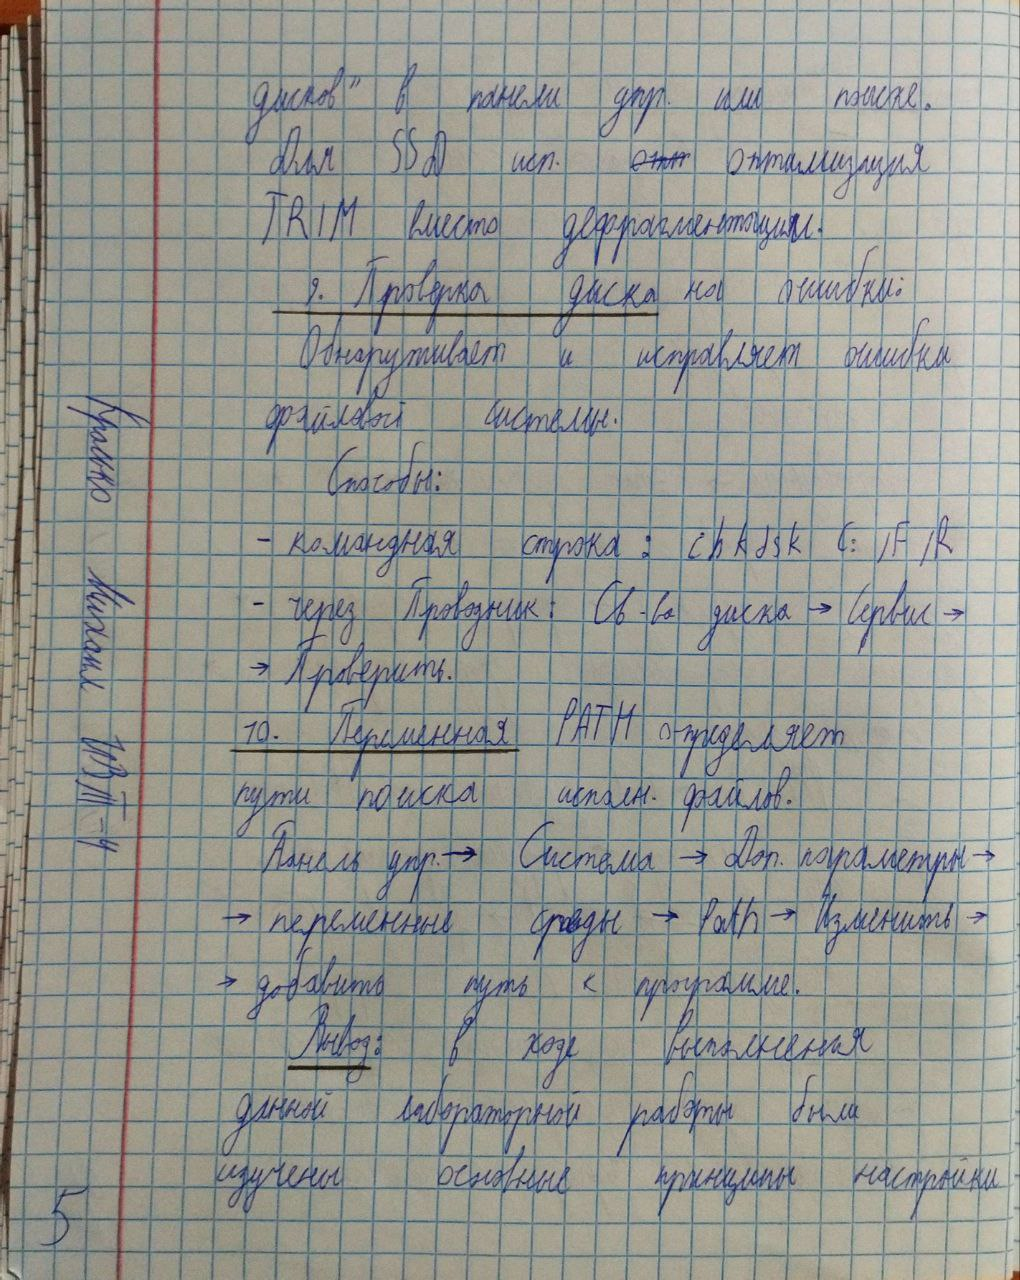 дисков" в панели упр. или поиске.
Для SSD исп. оптимизация
TRIM вместо дефрагментации.
9. Проверка диска на ошибки:
Обнаруживает и исправляет ошибки
файловой системы.
Способы:
- командная строка: chkdsk C: /F /R
- через Проводник: Св-ва диска → Сервис →
→ Проверить.
10. Переменная PATH определяет
пути поиска исполн. файлов.
Панель упр. → Система → Доп. параметры →
→ переменные среды → Path → Изменить →
→ добавить путь к программе.
Вывод: в ходе выполнения
данной лабораторной работы были
изучены основные принципы настройки
Михаил
5